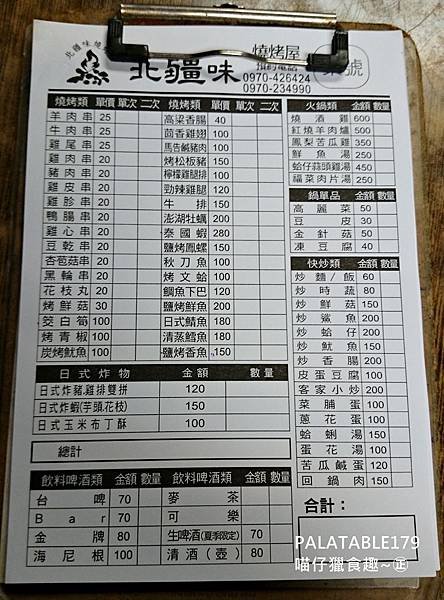 北疆味 燒烤屋
預約電話
0970-426424
0970-234990
號
燒烤類 單價 單次 二次
羊肉串 25
牛肉串 25
雞尾串 25
雞肉串 20
豬肉串 20
雞皮串 20
雞胗串 20
鴨腸串 20
雞心串 20
豆乾串 20
杏苞菇串 20
黑輪串 20
花枝丸 20
烤鮮菇 30
筊白筍 100
烤青椒 100
炭烤魷魚 100
燒烤類 單價 單次 二次
高粱香腸 40
茴香雞翅 100
馬告鹹豬肉 100
烤松板豬 150
檸檬雞腿排 100
勁辣雞腿 120
牛排 150
澎湖牡蠣 200
泰國蝦 280
鹽烤鳳螺 150
秋刀魚 100
烤文蛤 100
鯛魚下巴 120
鹽烤鮮魚 200
日式鯖魚 180
清蒸鱈魚 180
鹽烤香魚 150
日式炸物 金額 數量
日式炸豬,雞排雙拼 120
日式炸蝦(芋頭,花枝) 150
日式玉米布丁酥 100
總計
飲料啤酒類 金額 數量
台啤 70
Bar 70
金牌 80
海尼根 100
飲料啤酒類 金額 數量
麥茶
可樂
生啤酒(夏季限定) 70
清酒(壺) 80
火鍋類 金額 數量
燒酒雞 600
紅燒羊肉爐 500
鳳梨苦瓜雞 350
鮮魚湯 250
蛤仔蒜頭雞湯 450
福菜肉片湯 250
鍋單品 金額 數量
高麗菜 50
豆皮 30
金針菇 50
凍豆腐 40
快炒類 金額 數量
炒麵/飯 60
炒時蔬 80
炒鮮菇 150
炒鯊魚 200
炒蛤仔 200
炒魷魚 150
炒香腸 200
皮蛋豆腐 100
客家小炒 200
菜脯蛋 100
蔥花蛋 100
蛤蜊湯 150
蛋花湯 100
苦瓜鹹蛋 120
回鍋肉 150
合計：
PALATABLE179
喵仔獵食趣~㊣